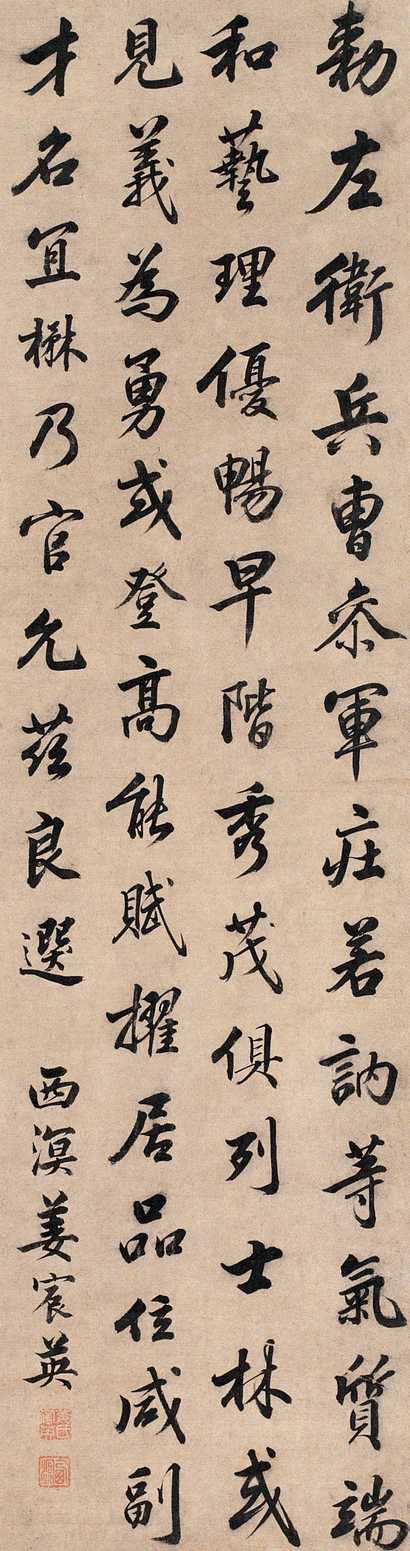 勅左衛兵曹叅軍庄若訥等氣質端
和藝理優暢早階秀茂俱列士林或
見義為勇或登高能賦擢居品位咸副
才名宜楙乃官允茲良選 西溟姜宸英